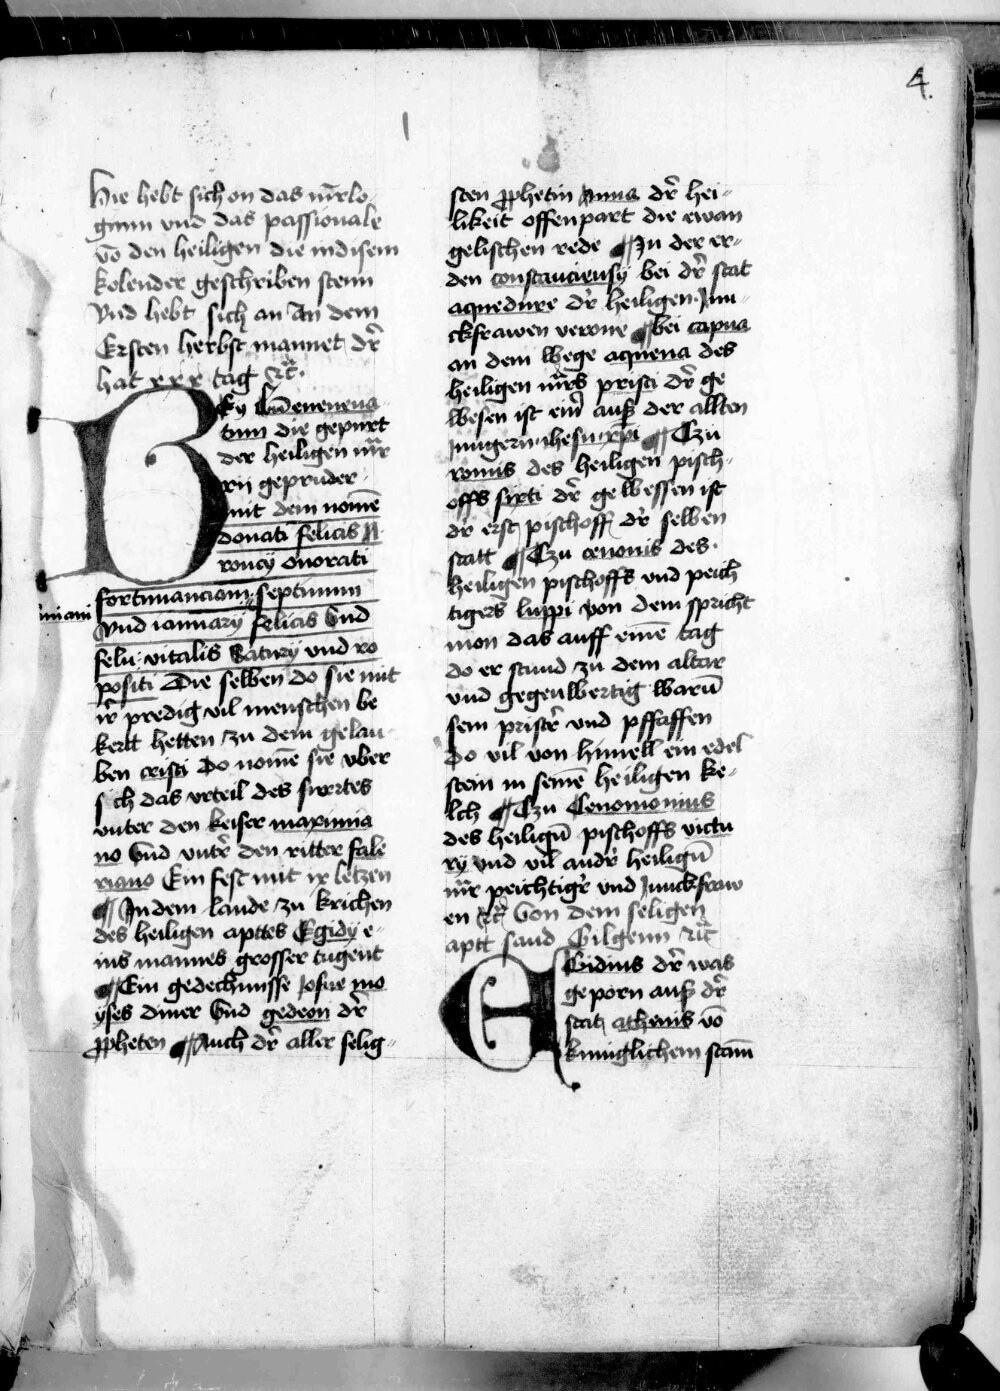 4.
Hie hebt sich on das mr̄lo
gium vnd das passionale
vō den heiligen die in disem
kolender geschriben stenn
Vnd hebt sich an An dem
Ersten herbst mannet dr̄
hat xxx tag
Bey
tum die gepurt
der heiligen mr̄
rn gepruder
mit dem nomē
donati felicis A
roncy onorati
fortunanciani septimum
miani
Vnd ianuarÿ felicis Vnd
felu vitalis Saturÿ vnd ro
positi Die selben do sie mit
ir̄ predig vil menschen be
kertt hetten zu dem gelau-
ben cristi Do nomē sie vber
sich das vrteil des swrtes
vnter den keiser maximia
no Vnd vntr̄ den ritter fale
riano Ein fest mit ix letzen
¶ In dem lande zu krichen
des heiligen apttes Egidÿ e-
ins mannes grosser tugent
¶ Ein gedechnusse Josue mo
yses diner Vnd gedeon dr̄
ꝓpheten ¶ Auch dr̄ aller selig-
sten ꝓphetin Anna dr̄ hei-
likeit offenpart die ewan
gelischen rede ¶ In der er-
den constanciensÿ bei dr̄ stat
aquedure dr̄ heiligen Jun-
ckfrawen verone ¶ bei capua
an dem wege aquena des
heiligen mr̄rs prisci dr̄ ge
wesen ist einr̄ auß der allten
Jungern ihesu xp̄i ¶ Czu
romis des heiligen pisch-
offs sixti dr̄ gewessen ist
dr̄ erst pischoff dr̄ selben
statt ¶ Czu cenonis des
heiligen pischoffs vnd peich
tigers luppi von dem spricht
mon das auff einē tag
do er stund zu dem altar
vnd gegenwertig warū
sem pristr̄ vnd pffaffen
Do vil von himell ein edel
stein in seinē heiligen ke-
lch ¶ Czu Cenomonius
des heiligū pischoffs victu
rÿ vnd vil andr̄ heiligū
mr̄r peichtigr̄ vnd Junckfraw
en Von dem seligen
aptt sand Gilgenn
EGidius dr̄ was
geporn auß dr̄
stat athenis vō
kuniglichem stam̄